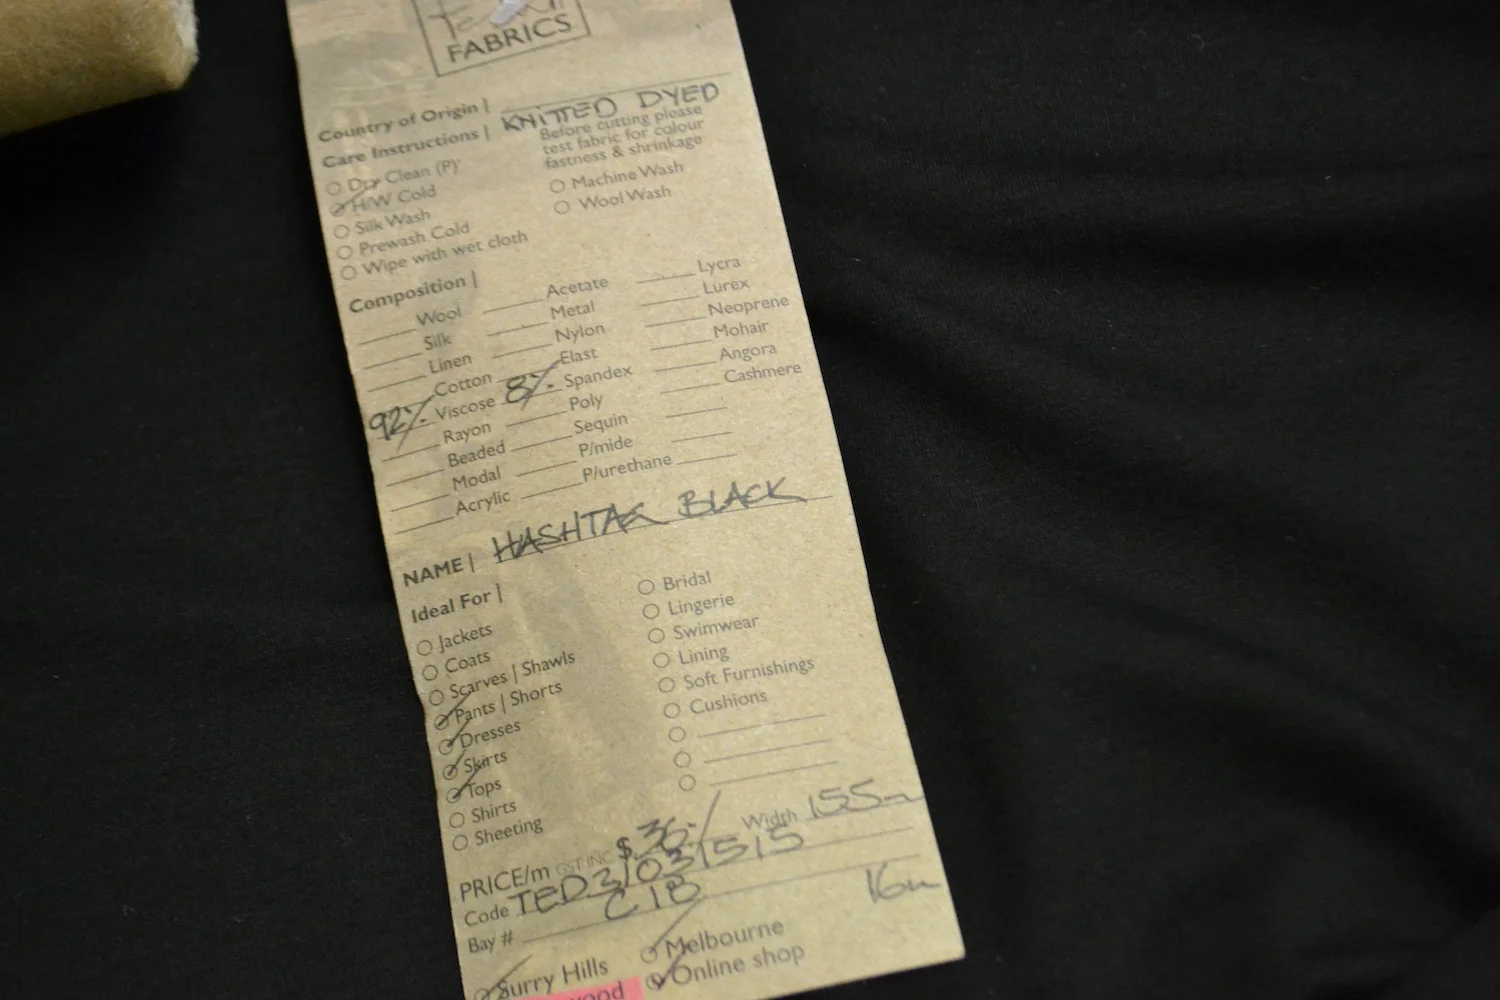 FABRICS
Country of Origin | KNITTED DYED
Care Instructions | Before cutting please
test fabric for colour
fastness & shrinkage
Dry Clean (P)
H/W Cold
Silk Wash
Prewash Cold
Wipe with wet cloth
Machine Wash
Wool Wash
Composition |
Wool
Silk
Linen
Cotton
92% Viscose
Rayon
Beaded
Modal
Acrylic
Acetate
Metal
Nylon
Elast
8% Spandex
Poly
Sequin
P/mide
P/urethane
Lycra
Lurex
Neoprene
Mohair
Angora
Cashmere
NAME | HASHTAG BLACK
Ideal For |
Jackets
Coats
Scarves | Shawls
Pants | Shorts
Dresses
Skirts
Tops
Shirts
Sheeting
Bridal
Lingerie
Swimwear
Lining
Soft Furnishings
Cushions
PRICE/m GST INC $36.- Width 155m
Code TED3/031515
Bay # C1B 16m
Surry Hills
Melbourne
Online shop